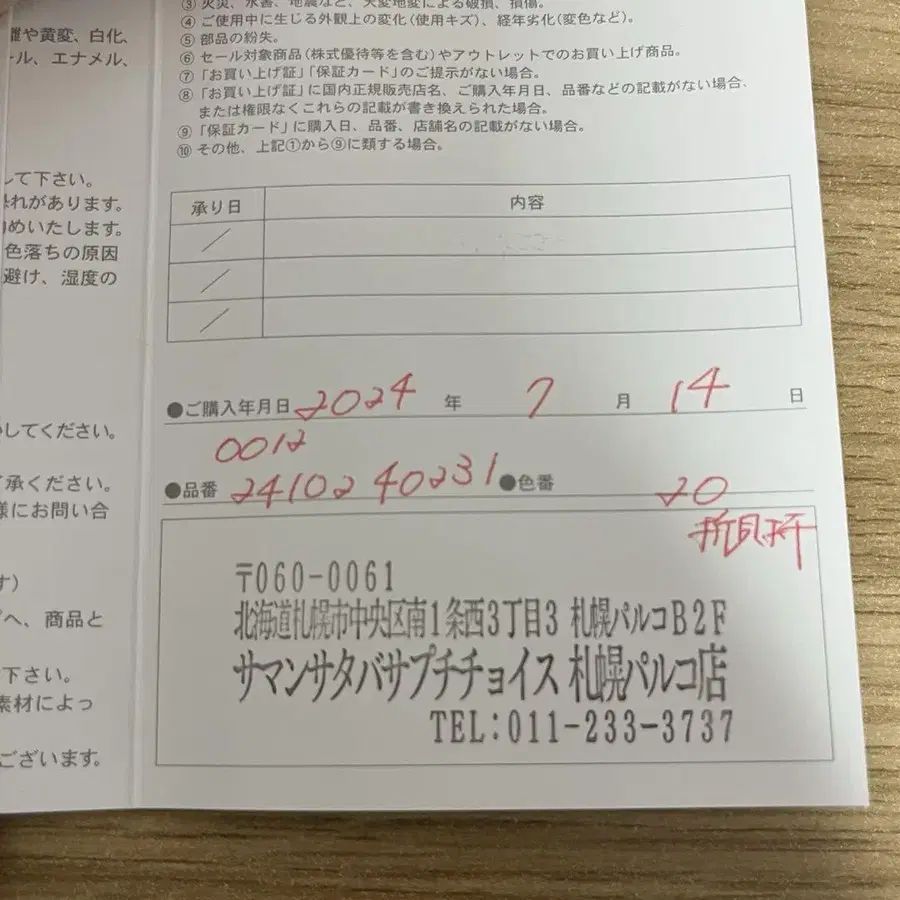 ③ 火災、水害、地震など、天変地変による破損、損傷。
④ ご使用中に生じる外観上の変化(使用キズ)、経年劣化(変色など)。
⑤ 部品の紛失。
⑥ セール対象商品(株式優待等を含む)やアウトレットでのお買い上げ商品。
⑦「お買い上げ証」「保証カード」のご提示がない場合。
⑧「お買い上げ証」に国内正規販売店名、ご購入年月日、品番などの記載がない場合、
または権限なくこれらの記載が書き換えられた場合。
⑨「保証カード」に購入日、品番、店舗名の記載がない場合。
⑩ その他、上記①から⑨に類する場合。
や黄変、白化、
ール、エナメル、
して下さい。
れがあります。
めいたします。
色落ちの原因
避け、湿度の
してください。
承ください。
様にお問い合
す)
へ、商品と
下さい。
素材によっ
ございます。
承り日 内容
/
/
/
●ご購入年月日 2024 年 7 月 14 日
0012
●品番 24102 40231 ●色番 20
〒060-0061
北海道札幌市中央区南1条西3丁目3 札幌パルコB2F
サマンサタバサプチチョイス 札幌パルコ店
TEL:011-233-3737